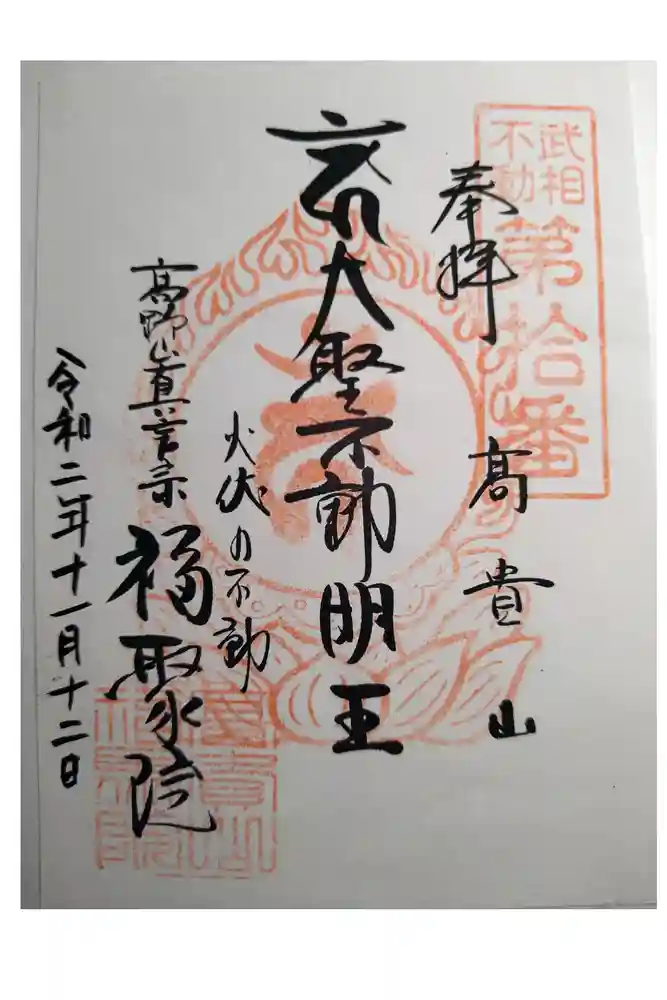 武相
不動
第拾番
奉拝
髙貴山
大聖不動明王
火伏の不動
高野山真言宗
福聚院
令和二年十一月十二日